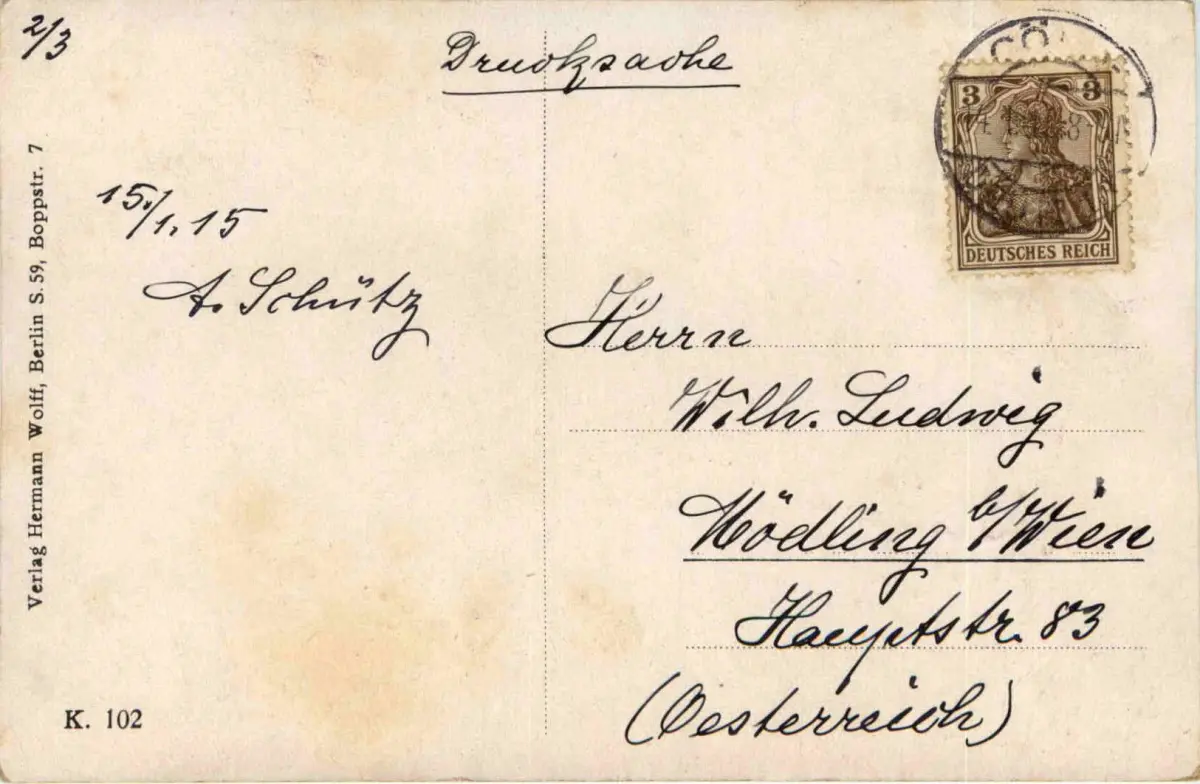 2/3
Drucksache
3 3
DEUTSCHES REICH
15./1.15
A. Schütz
Herrn
Wilh. Ludwig
Mödling b/Wien
Hauptstr. 83
(Oesterreich)
Verlag Hermann Wolff, Berlin S. 59, Boppstr. 7
K. 102